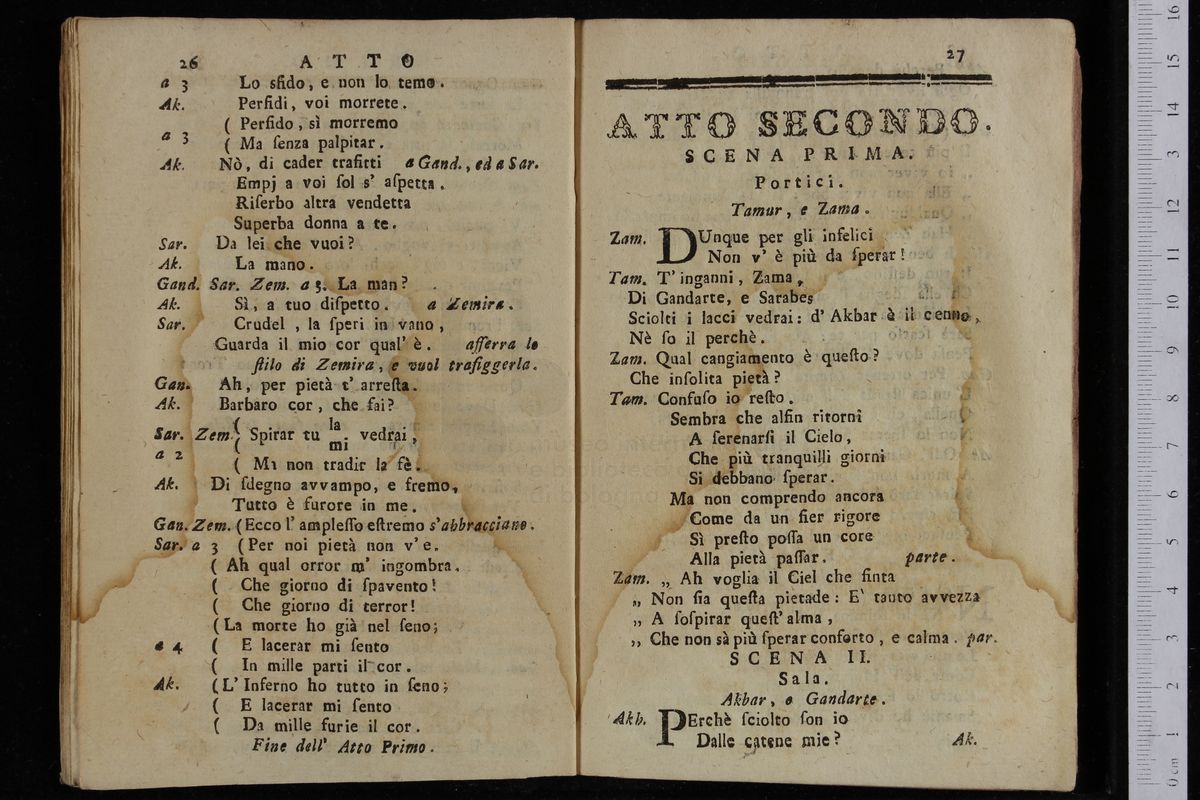 26 ATTO
a 3 Lo sfido, e non lo temo.
Ak. Perfidi, voi morrete.
( Perfido, sì morremo
a 3
( Ma ſenza palpitar.
Ak. Nò, di cader trafitti a Gand., ed a Sar.
Empj a voi ſol s' aſpetta.
Riſerbo altra vendetta
Superba donna a te.
Sar. Da lei che vuoi?
Ak. La mano.
Gand. Sar. Zem. a 3. La man?
Ak. Sì, a tuo diſpetto. a Zemira.
Sar. Crudel, la ſperi in vano,
Guarda il mio cor qual' è. afferra lo
ſtilo di Zemira, e vuol trafiggerla.
Gan. Ah, per pietà t' arreſta.
Ak. Barbaro cor, che fai?
Sar. Zem. ( Spirar tu la mi vedrai,
a 2
( Mi non tradir la fè.
Ak. Di ſdegno avvampo, e fremo,
Tutto è furore in me.
Gan. Zem. (Ecco l' ampleſſo eſtremo s'abbracciano.
Sar. a 3 (Per noi pietà non v' e.
( Ah qual orror m' ingombra.
( Che giorno di ſpavento!
( Che giorno di terror!
(La morte ho già nel ſeno;
a 4 ( E lacerar mi ſento
( In mille parti il cor.
Ak. (L' Inferno ho tutto in ſeno;
( E lacerar mi ſento
( Da mille furie il cor.
Fine dell' Atto Primo.
27
ATTO SECONDO.
SCENA PRIMA.
Portici.
Tamur, e Zama.
Zam. DUnque per gli infelici
Non v' è più da ſperar!
Tam. T' inganni, Zama,
Di Gandarte, e Sarabes
Sciolti i lacci vedrai: d' Akbar è il cenno,
Nè ſo il perchè.
Zam. Qual cangiamento è queſto?
Che inſolita pietà?
Tam. Confuſo io reſto.
Sembra che alfin ritorni
A ſerenarſi il Cielo,
Che più tranquilli giorni
Si debbano ſperar.
Ma non comprendo ancora
Come da un fier rigore
Sì preſto poſſa un core
Alla pietà paſſar. parte.
Zam. „ Ah voglia il Ciel che finta
„ Non ſia queſta pietade: E' tanto avvezza
„ A ſoſpirar queſt' alma,
„ Che non sà più ſperar conforto, e calma. par.
SCENA II.
Sala.
Akbar, e Gandarte.
Akb. PErchè ſciolto ſon io
Dalle catene mie? Ak.